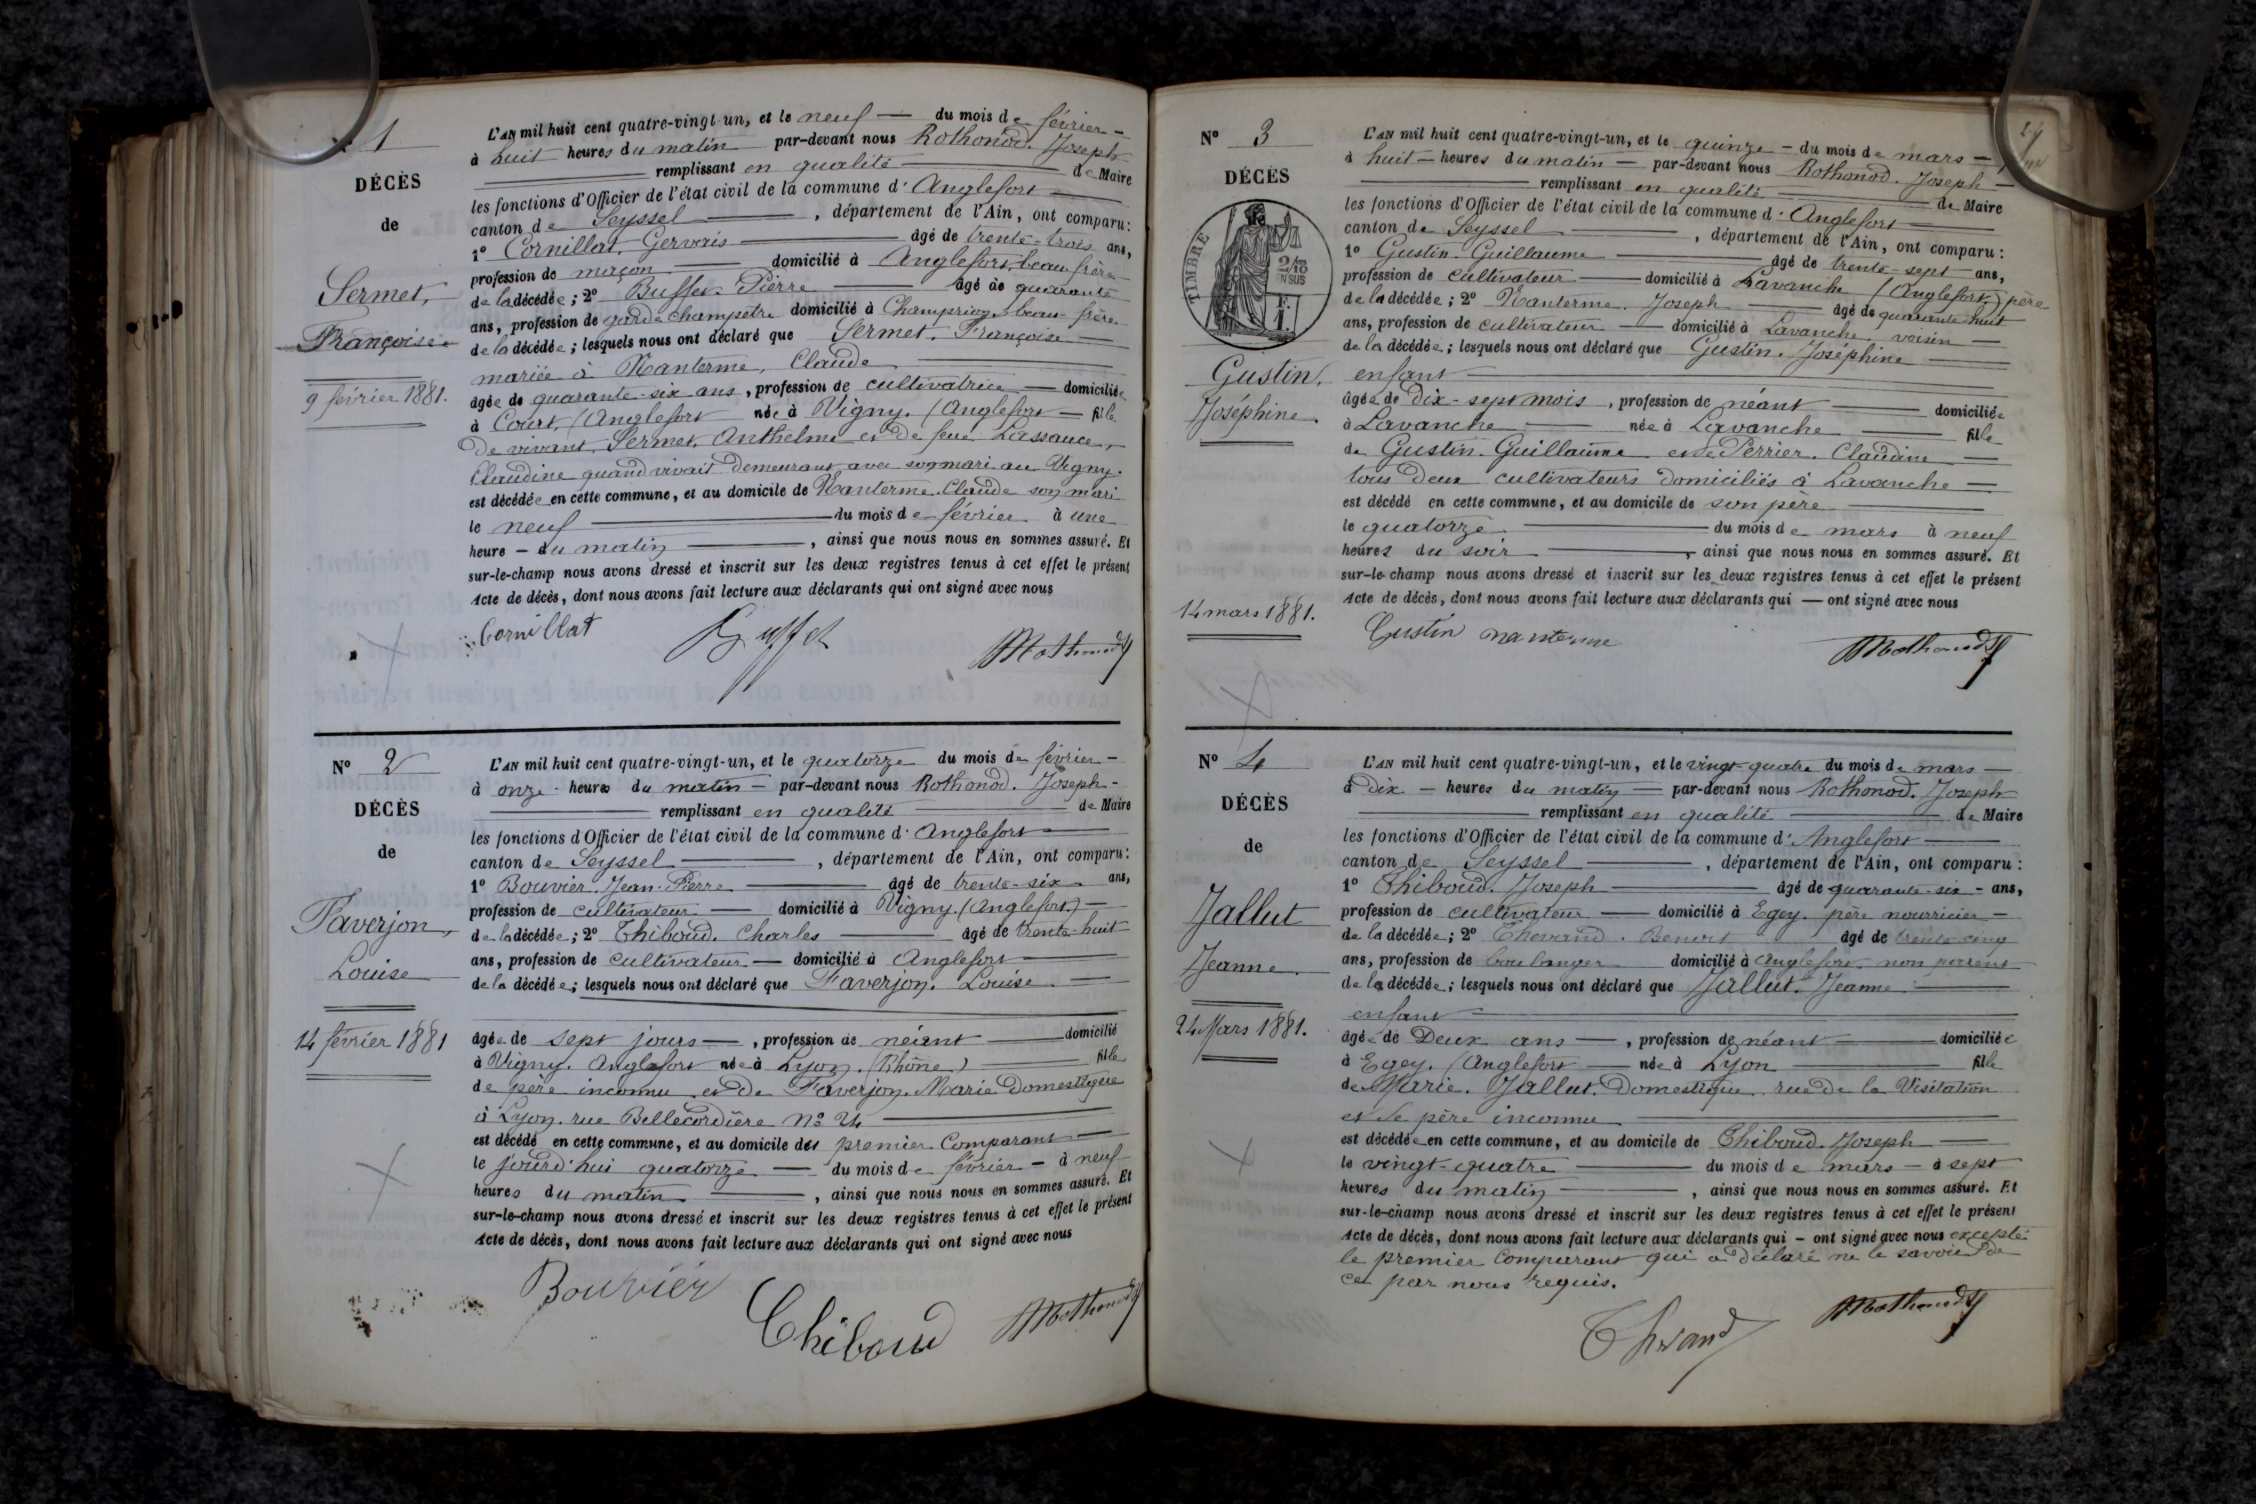 N° 1
DÉCÈS
de
Sermet,
Françoise
9 février 1881.
L'AN mil huit cent quatre-vingt-un, et le neuf — du mois de février —
à huit heures du matin par-devant nous Rothonod. Joseph
remplissant en qualité de Maire
les fonctions d'Officier de l'état civil de la commune d'Anglefort
canton de Seyssel, département de l'Ain, ont comparu:
1° Cornillat, Gervais âgé de trente-trois ans,
profession de maçon domicilié à Anglefort, beau frère
de la décédée; 2° Buffet. Pierre âgé de quarante
ans, profession de garde champêtre domicilié à beau-frère
de la décédée; lesquels nous ont déclaré que Sermet. Françoise
mariée à Nanterme, Claude
âgée de quarante-six ans, profession de cultivatrice — domiciliée
à Court, (Anglefort née à Vigny. (Anglefort — fille
de vivant Sermet, Anthelme et de feue Lassauce,
Claudine quand vivait demeurant avec son mari au Vigny.
est décédée en cette commune, et au domicile de Nanterme. Claude son mari
le neuf du mois de février à une
heure — du matin, ainsi que nous nous en sommes assuré. Et
sur-le-champ nous avons dressé et inscrit sur les deux registres tenus à cet effet le présent
Acte de décès, dont nous avons fait lecture aux déclarants qui ont signé avec nous
Cornillat Buffet Rothonod J
N° 2
DÉCÈS
de
Faverjon,
Louise
14 février 1881
L'AN mil huit cent quatre-vingt-un, et le quatorze du mois de février —
à onze heures du matin — par-devant nous Rothonod. Joseph —
remplissant en qualité de Maire
les fonctions d'Officier de l'état civil de la commune d'Anglefort
canton de Seyssel, département de l'Ain, ont comparu:
1° Bouvier. Jean-Pierre âgé de trente-six ans,
profession de cultivateur — domicilié à Vigny. (Anglefort) —
de la décédée; 2° Thiboud. Charles âgé de trente-huit
ans, profession de cultivateur — domicilié à Anglefort
de la décédée; lesquels nous ont déclaré que Faverjon. Louise
âgée de sept jours —, profession de néant domicilié
à Vigny. Anglefort née à Lyon. (Rhône) fille
de père inconnu et de Faverjon. Marie domestique
à Lyon. rue Bellecordière N° 24
est décédé en cette commune, et au domicile des premier comparant
le jourd'hui quatorze — du mois de février — à neuf
heures du matin, ainsi que nous nous en sommes assuré. Et
sur-le-champ nous avons dressé et inscrit sur les deux registres tenus à cet effet le présent
Acte de décès, dont nous avons fait lecture aux déclarants qui ont signé avec nous
Bouvier Thiboud Rothonod J
N° 3
DÉCÈS
TIMBRE
2/10
EN SUS
Gustin,
Joséphine
14 mars 1881.
L'AN mil huit cent quatre-vingt-un, et le quinze — du mois de mars —
à huit — heures du matin — par-devant nous Rothonod. Joseph —
remplissant en qualité de Maire
les fonctions d'Officier de l'état civil de la commune d'Anglefort
canton de Seyssel, département de l'Ain, ont comparu:
1° Gustin. Guillaume âgé de trente-sept ans,
profession de cultivateur domicilié à Lavanche (Anglefort) père
de la décédée; 2° Nanterme. Joseph âgé de quarante huit
ans, profession de cultivateur — domicilié à Lavanche voisin —
de la décédée; lesquels nous ont déclaré que Gustin. Joséphine
enfant
âgée de dix-sept mois, profession de néant domiciliée
à Lavanche née à Lavanche fille
de Gustin. Guillaume et de Perrier. Claudine
tous deux cultivateurs domiciliés à Lavanche
est décédé en cette commune, et au domicile de son père
le quatorze du mois de mars à neuf
heures du soir, ainsi que nous nous en sommes assuré. Et
sur-le-champ nous avons dressé et inscrit sur les deux registres tenus à cet effet le présent
Acte de décès, dont nous avons fait lecture aux déclarants qui — ont signé avec nous
Gustin nanterme Rothonod J
N° 4
DÉCÈS
de
Jallut
Jeanne.
24 Mars 1881.
L'AN mil huit cent quatre-vingt-un, et le vingt-quatre du mois de mars —
à dix — heures du matin — par-devant nous Rothonod. Joseph
remplissant en qualité de Maire
les fonctions d'Officier de l'état civil de la commune d'Anglefort
canton de Seyssel, département de l'Ain, ont comparu:
1° Thiboud. Joseph âgé de quarante-six — ans,
profession de cultivateur — domicilié à Egey. père nourricier —
de la décédée; 2° Benoit âgé de trente cinq
ans, profession de boulanger domicilié à Anglefort. non parent
de la décédée; lesquels nous ont déclaré que Jallut. Jeanne
enfant
âgée de Deux ans —, profession de néant domiciliée
à Egey. (Anglefort née à Lyon fille
de Marie. Jallut. Domestique rue de la Visitation
et de père inconnu
est décédée en cette commune, et au domicile de Thiboud. Joseph
le vingt-quatre du mois de mars — à sept
heures du matin, ainsi que nous nous en sommes assuré. Et
sur-le-champ nous avons dressé et inscrit sur les deux registres tenus à cet effet le présent
Acte de décès, dont nous avons fait lecture aux déclarants qui — ont signé avec nous excepté
le premier comparant qui a déclaré ne le savoir de
ce par nous requis.
Rothonod J